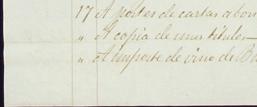 17 A portes de cartas a bor
" A copia de unos titulos
" A importe de vino de Bu